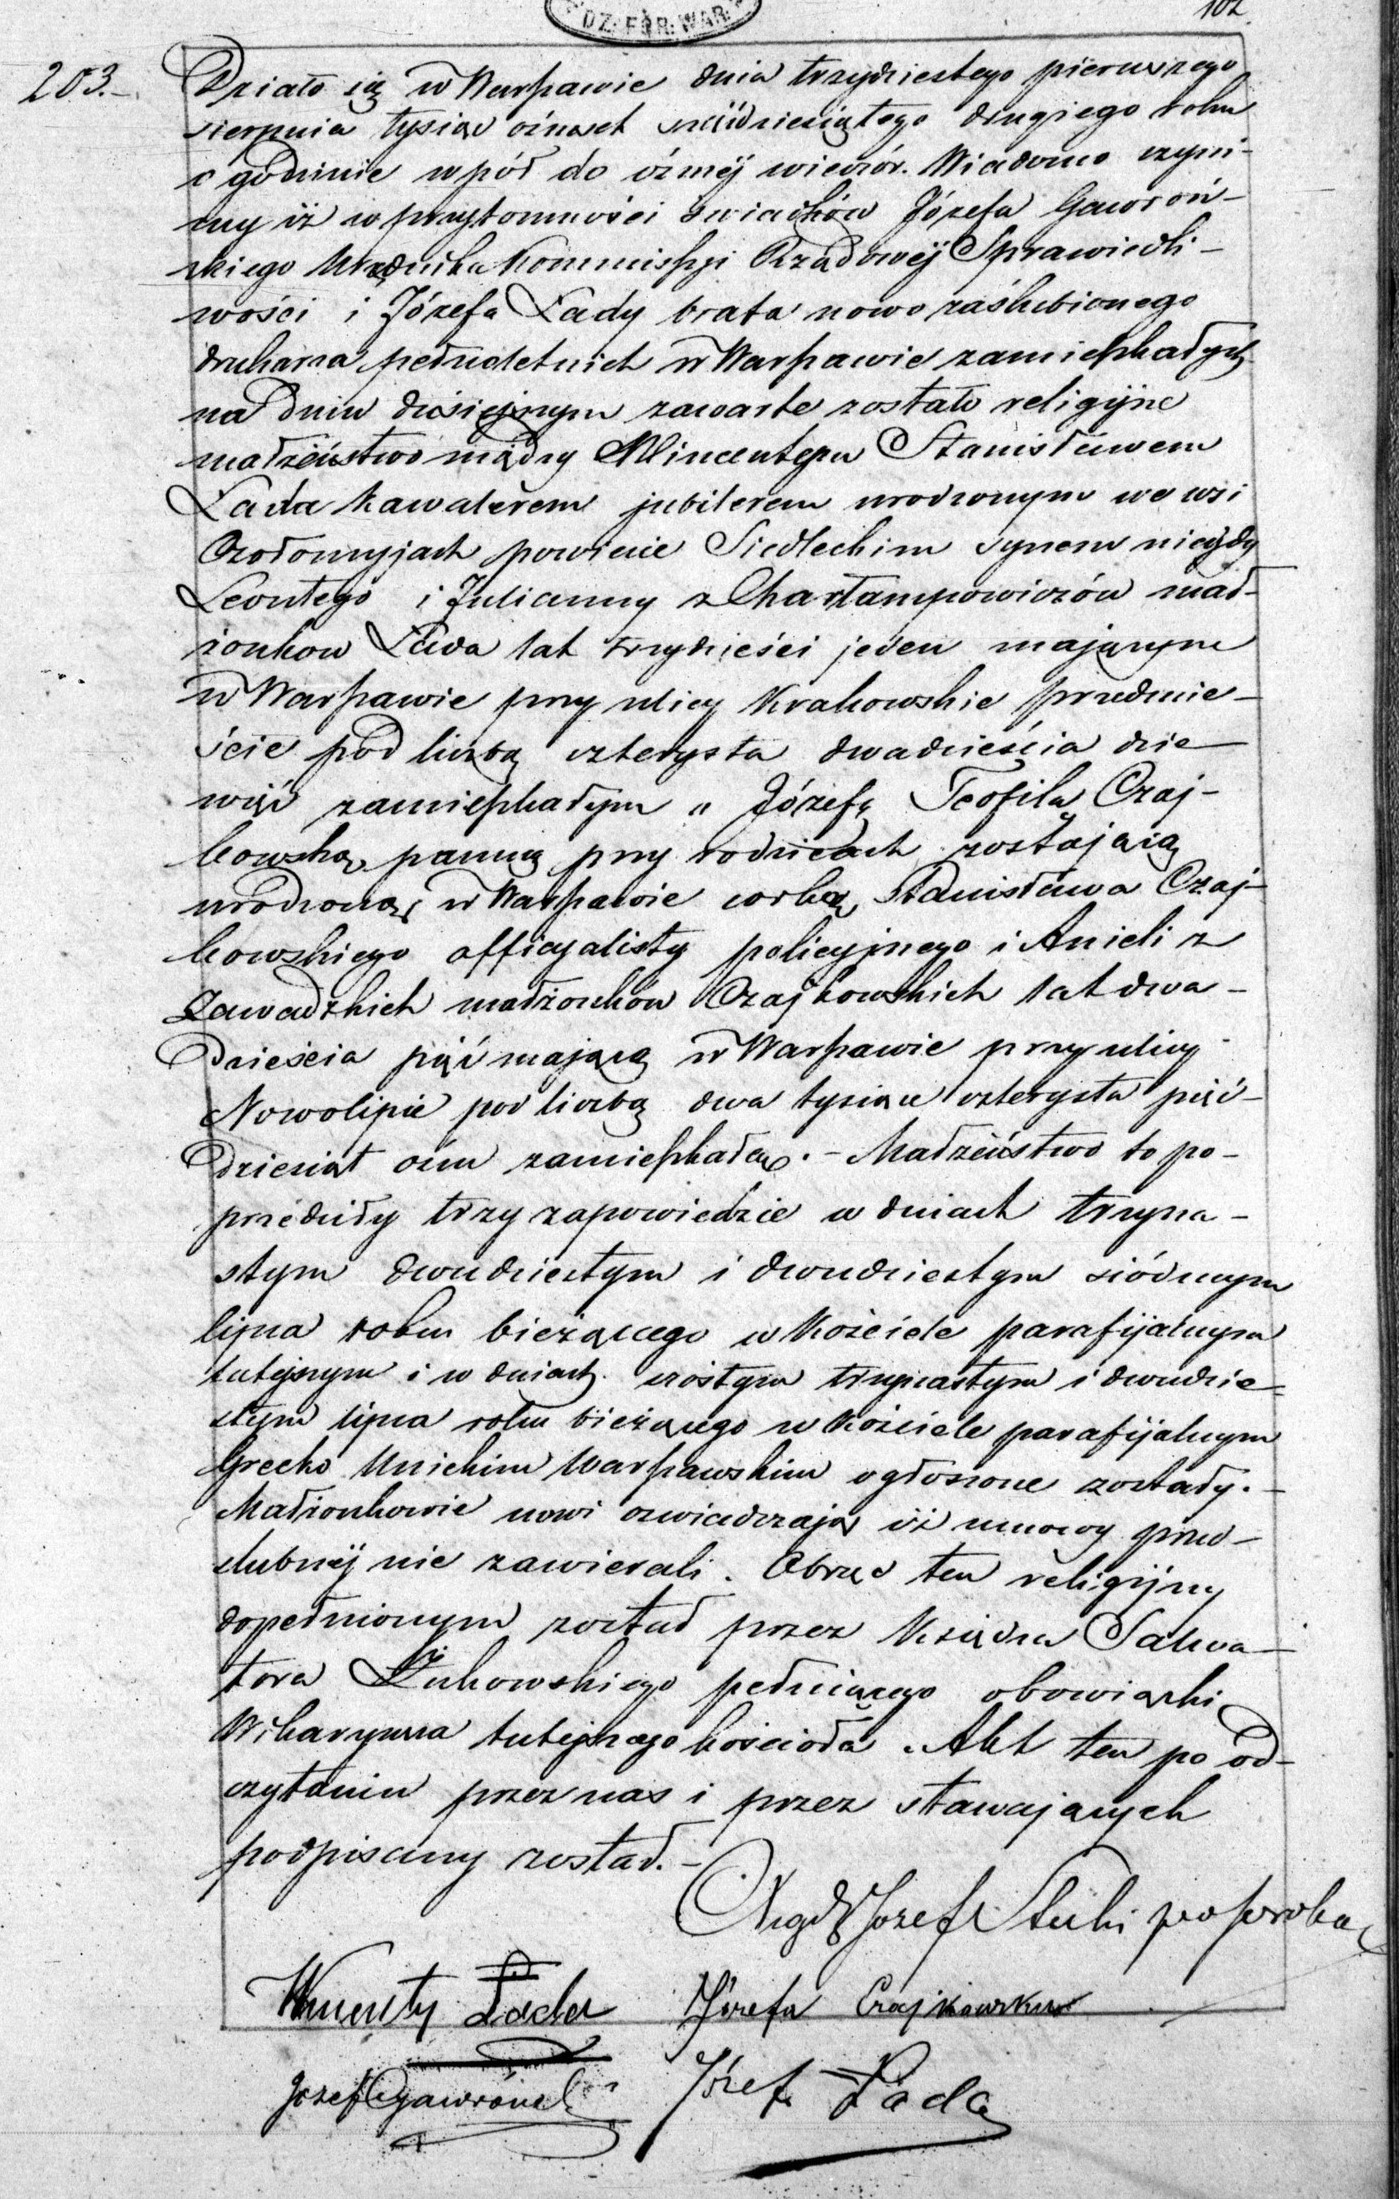 DZ. FAR. WAR.
102
203.-
Działo się w Warszawie dnia trzydziestego pierwszego
sierpnia tysiąc ośmset sześćdziesiątego drugiego roku
o godzinie wpół do ósmej wieczór. Wiadomo czyni-
my iż w przytomności świadków Józefa Gawroń-
skiego Urzędnika Kommissyi Rządowej Sprawiedli-
wości i Józefa Łady brata nowo zaślubionego
drukarza pełnoletnich w Warszawie zamieszkałych
na dniu dzisiejszym zawarte zostało religijne
małżeństwo między Wincentym Stanisławem
Łada kawalerem jubilerem urodzonym we wsi
Czołomyjach powiecie Siedleckim synem niegdy
Leontego i Julianny z Charłampowiczów mał-
żonków Łada lat trzydzieści jeden mającym
w Warszawie przy ulicy Krakowskie przedmie-
ście pod liczbą czterysta dwadzieścia dzie-
więć zamieszkałym a Józefą Teofilą Czaj-
kowską panną przy rodzicach zostającą
urodzoną w Warszawie córką Stanisława Czaj-
kowskiego officyalisty policyjnego i Anieli z
Zawadzkich małżonków Czajkowskich lat dwa-
dzieścia pięć mającą w Warszawie przy ulicy
Nowolipie pod liczbą dwa tysiące czterysta pięć-
dziesiąt ośm zamieszkałą. - Małżeństwo to po-
przedziły trzy zapowiedzie w dniach trzyna-
stym dwudziestym i dwudziestym siódmym
lipca roku bieżącego w Kościele parafijalnym
tutejszym i w dniach szóstym trzynastym i dwudzie-
stym lipca roku bieżącego w Kościele parafijalnym
Grecko Unickim Warszawskim ogłoszone zostały. -
Małżonkowie nowi oświadczają iż umowy przed-
ślubnej nie zawierali. Obrzęd ten religijny
dopełnionym został przez Księdza Salwa-
tora Żukowskiego pełniącego obowiązki
Wikaryusza tutejszego kościoła. Akt ten po od-
czytaniu przez nas i przez stawających
podpisany został. -
Józef Stecki
Wincenty Łada Józefa Czajkowska
Józef Gawroński Józef Łada